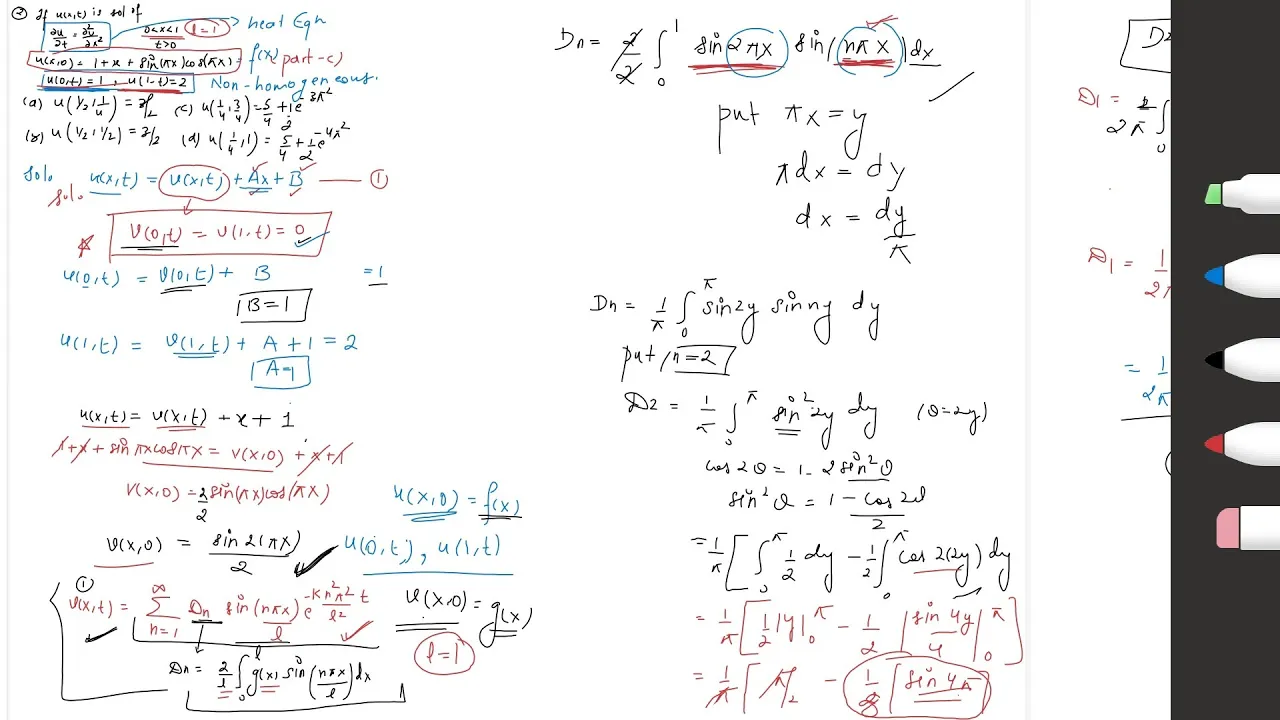 ② If u(x,t) is sol of
∂u/∂t = ∂²u/∂x² 0<x<1 l=1 t>0 → heat Eqn
u(x,0) = 1+x+sin(πx)cos(πx) = f(x) part-c)
u(0,t)=1, u(1,t)=2 Non-homogeneous.
(a) u(1/2,1/4) = 3/2 (c) u(1/4,3/4) = 5/4 + 1/2 e^3π²
(b) u(1/2,1/2) = 3/2 (d) u(1/4,1) = 5/4 + 1/2 e^-4π²
Solo u(x,t) = v(x,t) + Ax + B —— ①
Solo
v(0,t) = v(1,t) = 0
u(0,t) = v(0,t) + B = 1
B=1
u(1,t) = v(1,t) + A + 1 = 2
A=1
u(x,t) = v(x,t) + x + 1
1+x+sinπx cosπx = v(x,0) + x+1
v(x,0) = 2/2 sin(πx)cos(πx)
v(x,0) = sin2(πx)/2
u(x,0) = f(x)
u(0,t), u(1,t)
①
v(x,t) = ∑ n=1 ∞ Dn sin(nπx)/l e^-Kn²π²/l² t
v(x,0) = g(x)
l=1
Dn = 2/l ∫₀^l g(x) sin(nπx/l) dx
Dn = 2/2 ∫₀^1 sin2πx sin(nπx) dx
put πx = y
πdx = dy
dx = dy/π
Dn = 1/π ∫₀^π sin2y sin ny dy
put n=2
D2 = 1/π ∫₀^π sin²2y dy (θ=2y)
cos2θ = 1-2sin²θ
sin²θ = 1-cos2θ/2
= 1/π [ ∫₀^π 1/2 dy - 1/2 ∫₀^π cos2(2y) dy
= 1/π [ 1/2 |y|₀^π - 1/2 |sin4y/4|₀^π ]
= 1/π [ π/2 - 1/8 [sin4π]
D2
D1 = 2/2π ∫₀
D1 = 1/2π
= 1/2π